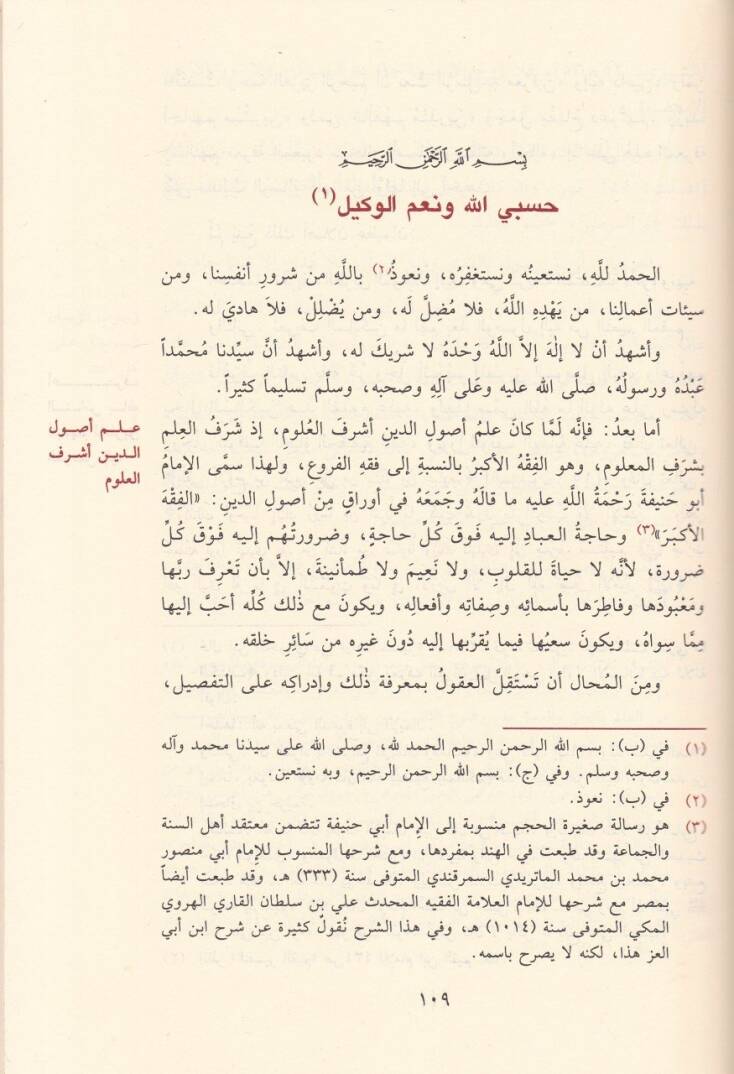 بِسْمِ اللَّهِ الرَّحْمَٰنِ الرَّحِيمِ
حسبي الله ونعم الوكيل(١)
الحمدُ للَّهِ، نستعينُه ونستغفِرُه، ونعوذُ(٢) باللَّهِ من شرورِ أنفسِنا، ومن
سيئات أعمالِنا، من يَهْدِهِ اللَّهُ، فلا مُضِلَّ لَه، ومن يُضْلِلْ، فلاَ هاديَ له.
وأشهدُ أنْ لا إلٰهَ إلاَّ اللَّهُ وَحْدَهُ لا شريكَ له، وأشهدُ أنَّ سيِّدنا مُحمَّداً
عَبْدُهُ ورسولُهُ، صلَّى الله عليه وعَلى آلِهِ وصحبه، وسلَّم تسليماً كثيراً.
أما بعدُ: فإنَّه لَمَّا كانَ علمُ أصولِ الدينِ أشرفَ العُلومِ، إذ شَرَفُ العِلمِ
بشرَفِ المعلومِ، وهو الفِقْهُ الأكبرُ بالنسبةِ إلى فقهِ الفروعِ، ولهذا سمَّى الإمامُ
أبو حَنيفةَ رَحْمَةُ اللَّهِ عليه ما قالَهُ وجَمَعَهُ في أوراقٍ مِنْ أصولِ الدينِ: «الفِقْهَ
الأكبَرَ»(٣) وحاجةُ العبادِ إليه فَوقَ كُلِّ حاجةٍ، وضرورتُهُم إليه فَوْقَ كُلِّ
ضرورة، لأنَّه لا حياةَ للقلوبِ، ولا نَعِيمَ ولا طُمأنينةَ، إلاَّ بأن تَعْرِفَ ربَّها
ومَعْبُودَها وفاطِرَها بأسمائِه وصِفاتِه وأفعالِه، ويكونَ مع ذٰلك كُلِّه أحَبَّ إليها
مِمَّا سِواهُ، ويكونَ سعيُها فيما يُقرِّبها إليه دُونَ غيرِه من سَائِرِ خلقه.
ومِنَ المُحال أن تَسْتَقِلَّ العقولُ بمعرفة ذٰلك وإدراكِه على التفصيل،
علم أصول
الدين أشرف
العلوم
(١) في (ب): بسم الله الرحمن الرحيم الحمد لله، وصلى الله على سيدنا محمد وآله
وصحبه وسلم. وفي (ج): بسم الله الرحمن الرحيم، وبه نستعين.
(٢) في (ب): نعوذ.
(٣) هو رسالة صغيرة الحجم منسوبة إلى الإمام أبي حنيفة تتضمن معتقد أهل السنة
والجماعة وقد طبعت في الهند بمفردها، ومع شرحها المنسوب للإمام أبي منصور
محمد بن محمد الماتريدي السمرقندي المتوفى سنة (٣٣٣) هـ، وقد طبعت أيضاً
بمصر مع شرحها للإمام العلامة الفقيه المحدث علي بن سلطان القاري الهروي
المكي المتوفى سنة (١٠١٤) هـ، وفي هذا الشرح نُقولٌ كثيرة عن شرح ابن أبي
العز هذا، لكنه لا يصرح باسمه.
١٠٩